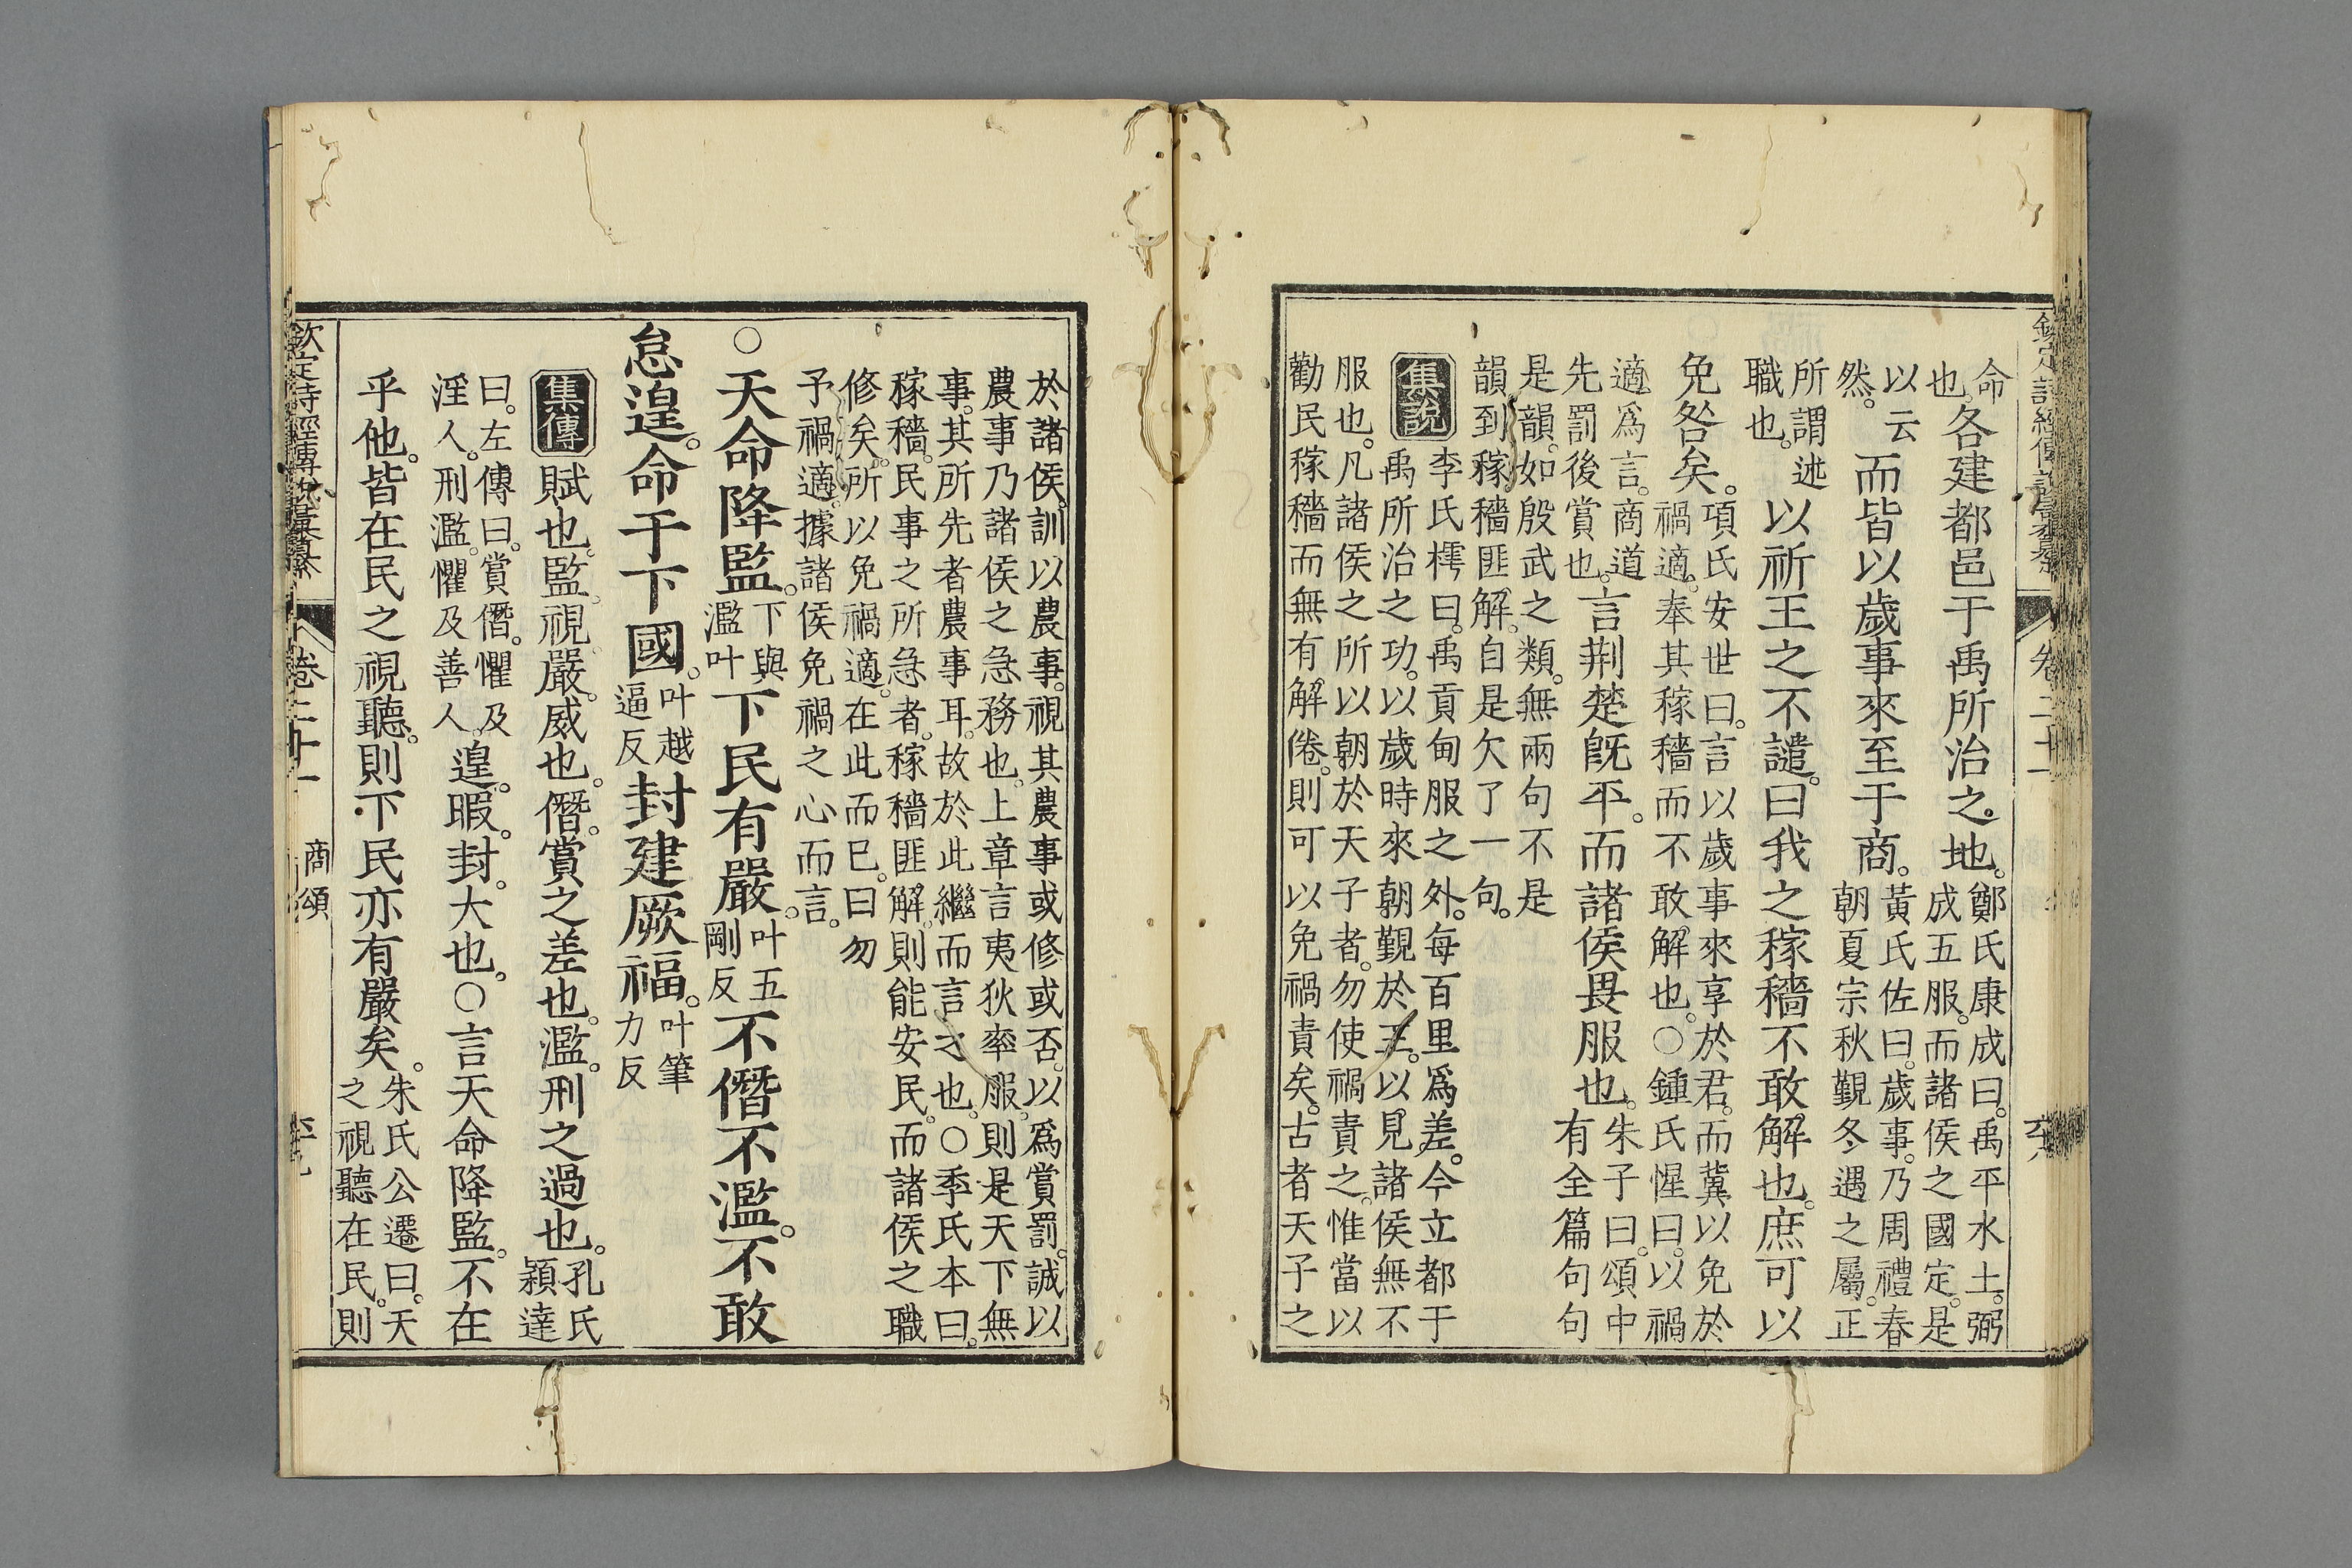 欽定詩經傳說彙纂 卷二十一
命
也。各建都邑于禹所治之地。鄭氏康成曰。禹平水土。弼
成五服。而諸侯之國定。是
以云
然。而皆以歲事來至于商。黃氏佐曰。歲事。乃周禮春
朝夏宗秋覲冬遇之屬。正
所謂述
職也。以祈王之不譴。曰我之稼穡不敢解也。庶可以
免咎矣。項氏安世曰。言以歲事來享於君。而冀以免於
禍適。奉其稼穡而不敢解也。○鍾氏惺曰。以禍
適爲言。商道
先罰後賞也。言荆楚旣平。而諸侯畏服也。朱子曰。頌中
有全篇句句
是韻。如殷武之類。無兩句不是
韻到稼穡匪解。自是欠了一句。
集說 李氏樗曰。禹貢甸服之外。每百里爲差。今立都于
禹所治之功。以歲時來朝覲於王。以見諸侯無不
服也。凡諸侯之所以朝於天子者。勿使禍責之。惟當以
勸民稼穡而無有解倦。則可以免禍責矣。古者天子之
於諸侯。訓以農事。視其農事或修或否。以爲賞罰。誠以
農事乃諸侯之急務也。上章言夷狄率服。則是天下無
事。其所先者農事耳。故於此繼而言之也。○季氏本曰。
稼穡。民事之所急者。稼穡匪解。則能安民。而諸侯之職
修矣。所以免禍適。在此而已。曰勿
予禍適。據諸侯免禍之心而言。
○天命降監。下與
濫叶下民有嚴。叶五
剛反不僭不濫。不敢
怠遑。命于下國。叶越
逼反封建厥福。叶筆
力反
集傳 賦也。監。視。嚴。威也。僭。賞之差也。濫。刑之過也。孔氏
穎達
曰。左傳曰。賞僭。懼及
淫人。刑濫。懼及善人。遑。暇。封。大也。○言天命降監。不在
乎他。皆在民之視聽。則下民亦有嚴矣。朱氏公遷曰。天
之視聽在民。則
欽定詩經傳說彙纂 卷二十一 商頌